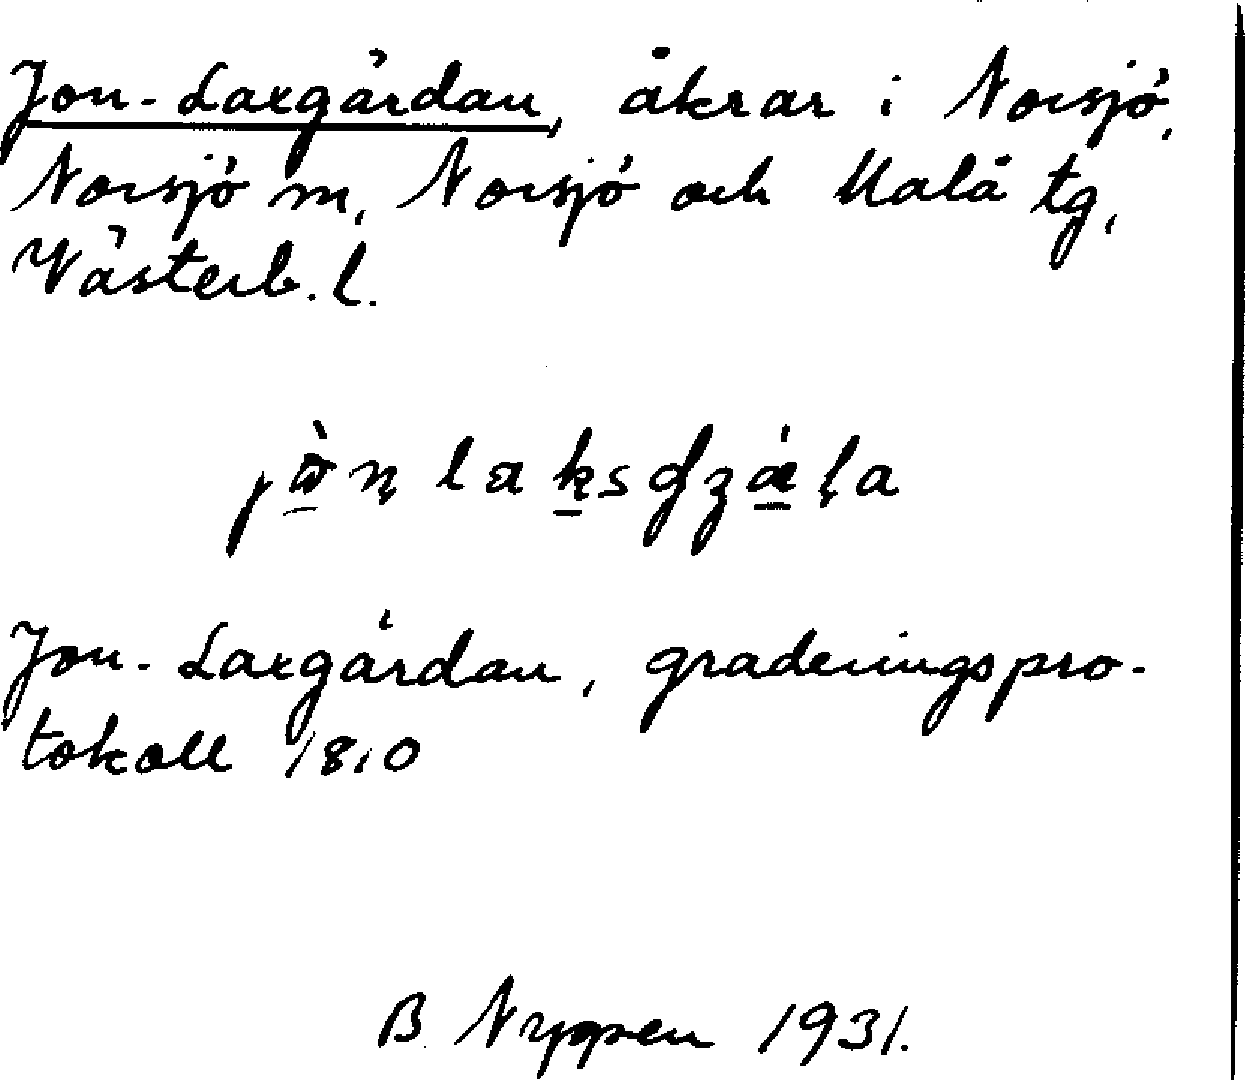 Jon-Laxgårdan, åkrar i Norsjö,
Norsjö m, Norsjö och Malå tg,
Västerb. l.
Jon-Laxgårdan, graderingspro-
tokoll 1810
B. Nygren 1931.